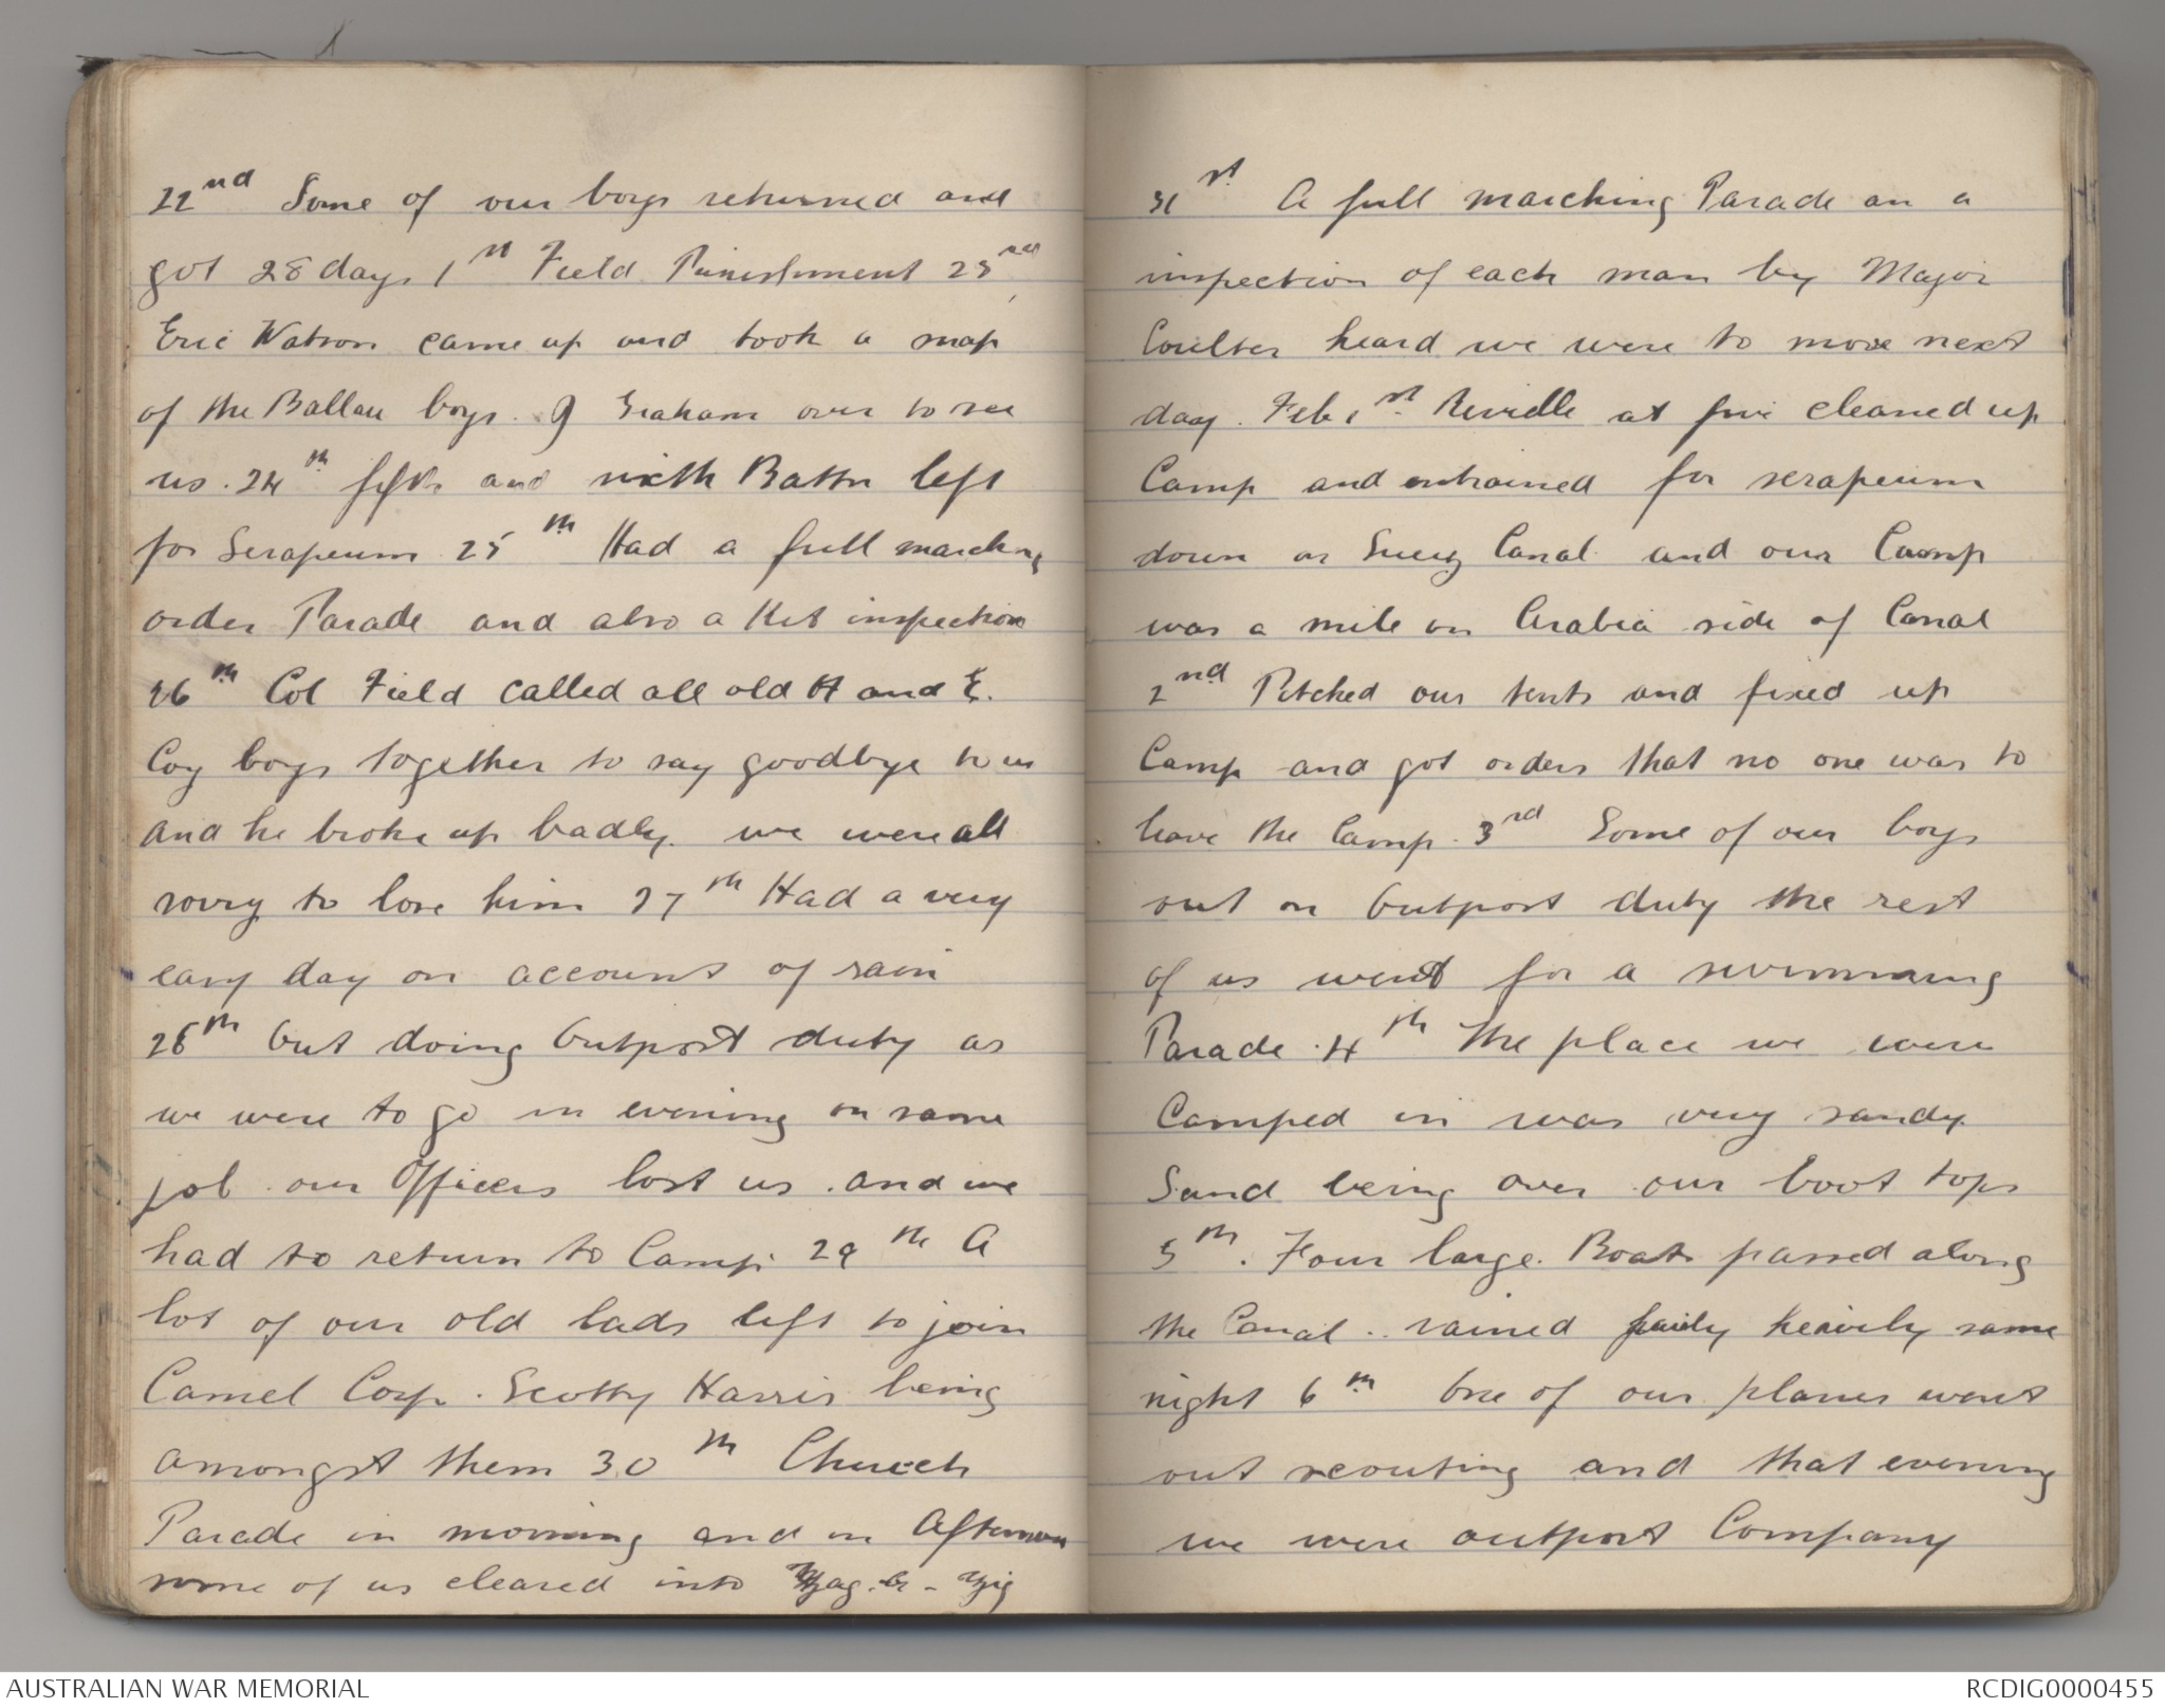 22nd Some of our boys returned and
got 28 days 1st Field Punishment 23rd
Eric Watson came up and took a snap
of the Ballan boys. G Graham over to see
us. 24th fifth and sixth Battn left
for Serapeum 25th Had a full marching
order Parade and also a Kit inspection
26th Col Field called all old H and E.
Coy boys together to say goodbye to us
and he broke up badly. we were all
sorry to lose him 27th Had a very
easy day on account of rain
28th Out doing Outpost duty as
we were to go in evening on same
job. our Officers lost us. and we
had to return to Camp. 29th A
lot of our old lads left to join
Camel Corp. Scotty Harris being
amongst them 30th Church
Parade in morning and in Afternoon
some of us cleared into Zag-a-Zig
31st. A full marching Parade an a
inspection of each man by Major
Coulter heard we were to move next
day. Feb 1st. Reveille at five cleaned up
Camp and entrained for serapeum
down on Suez Canal and our Camp
was a mile on Arabia side of Canal
2nd Pitched our tents and fixed up
Camp and got orders that no one was to
leave the Camp. 3rd Some of our boys
out on Outpost duty the rest
of us went for a swimming
Parade. 4th The place we were
Camped in was very sandy.
Sand being over our boot tops
5th. Four large. Boats passed along
the Canal.. rained fairly heavily same
night 6th One of our planes went
out scouting and that evening
we were outpost Company
AUSTRALIAN WAR MEMORIAL
RCDIG0000455